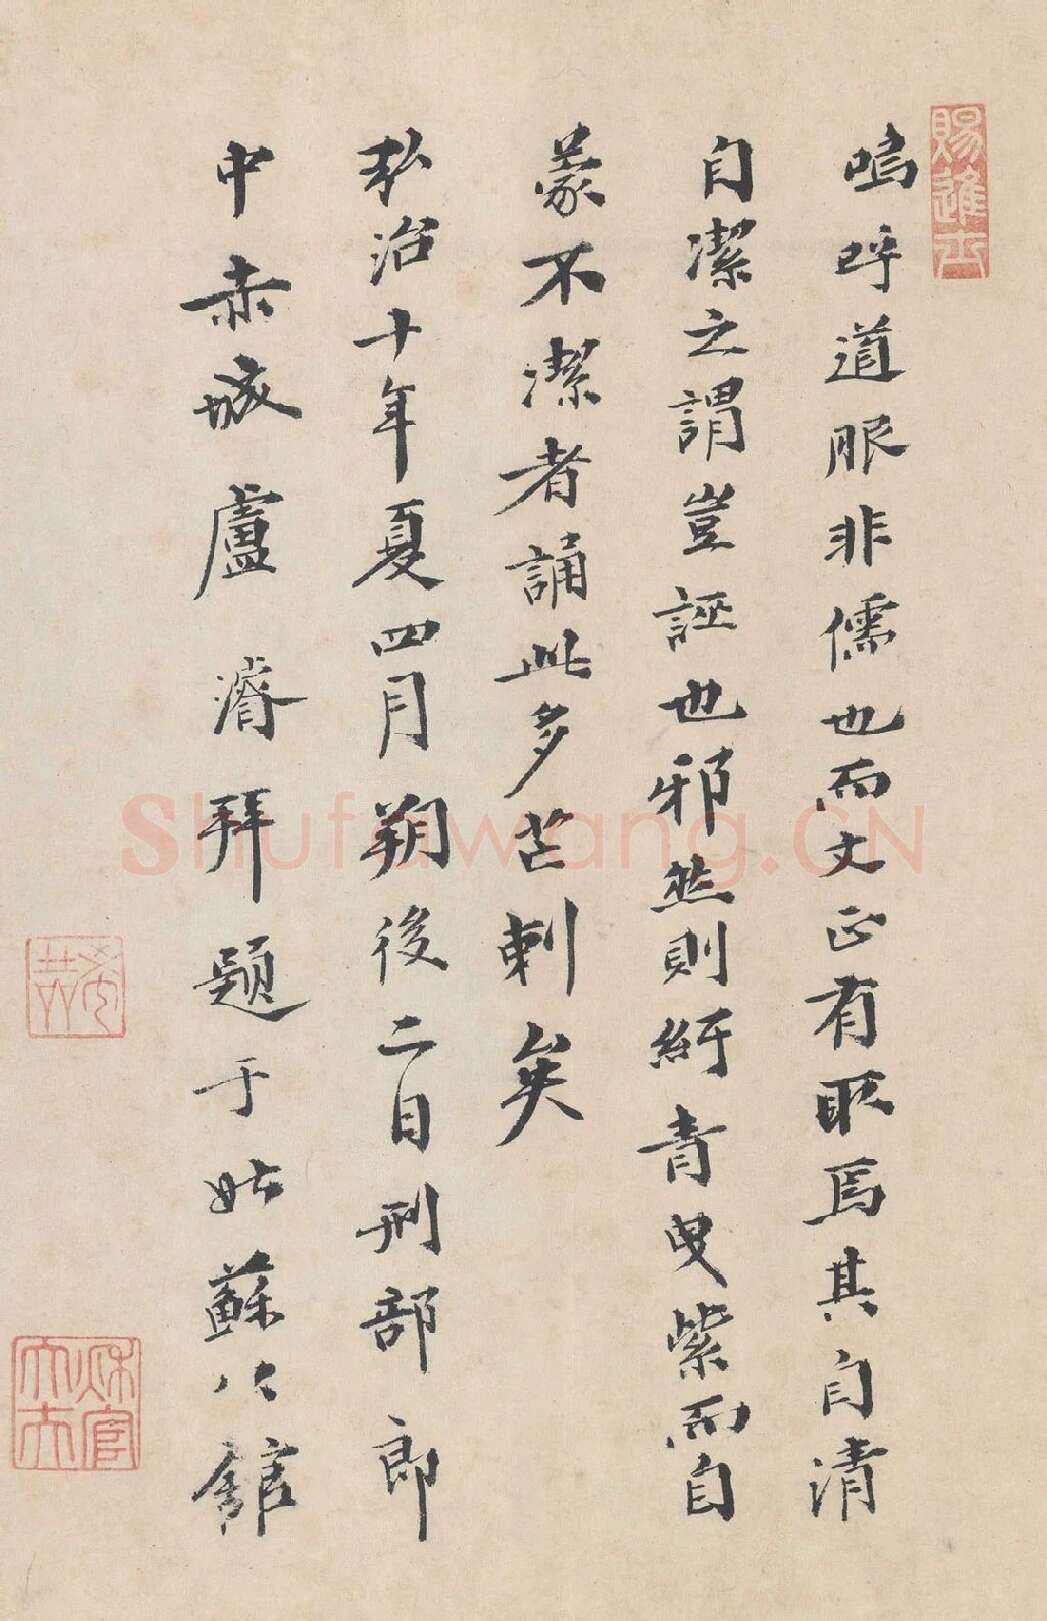 嗚呼道服非儒也而文正有取焉其自清
自潔之謂豈誣也邪然則紆青曳紫而自
蒙不潔者誦此多芒刺矣
弘治十年夏四月朔後二日刑部郎
中赤城盧濬拜題于姑蘇公館
賜進士
希哲
秋官大夫
Shufawang.CN